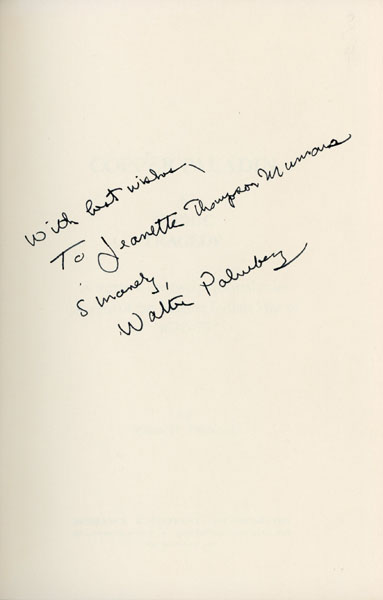 With best wishes,
To Jeanette Thompson
Sincerely,
Walter Palmberg